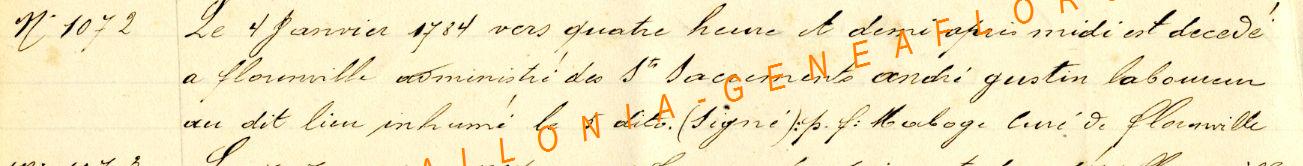 N° 1072 Le 4 Janvier 1784 vers quatre heure et demi apris midi est decedé
a florenville administré des Sts Sacrements andré gustin laboureur
au dit lieu inhumé le 5 dito. (Signé): p. f: Maboge Curé de florenville
WALLONIA-GENEAFLOR